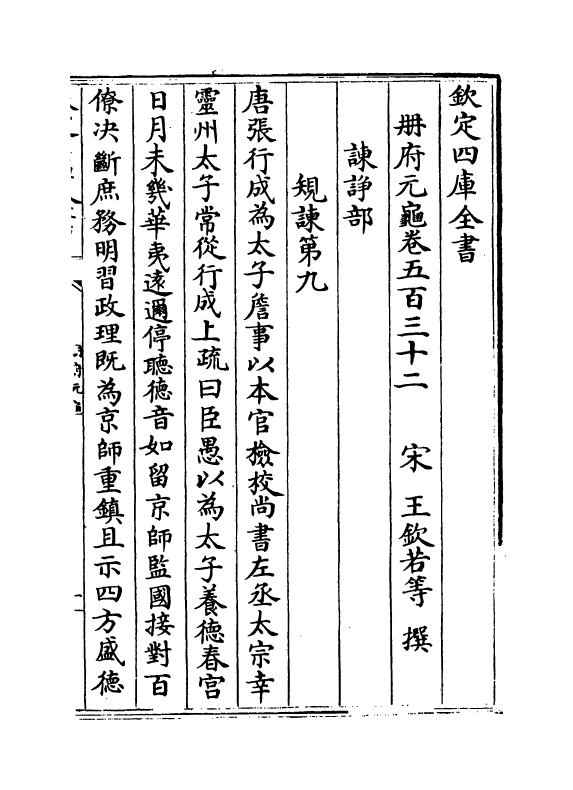 欽定四庫全書
冊府元龜卷五百三十二 宋 王欽若等 撰
諫諍部
規諫第九
唐張行成為太子詹事以本官檢校尚書左丞太宗幸
靈州太子常從行成上疏曰臣愚以為太子養德春宫
日月未幾華夷逺邇停聽德音如留京師監國接對百
僚决斷庶務明習政理既為京師重鎮且示四方盛德